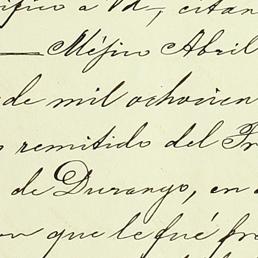 ífico a Vd–, citan
— Méjico Abril
de mil ochocien
remitido del Fr
de Durango, en
que le fué fra